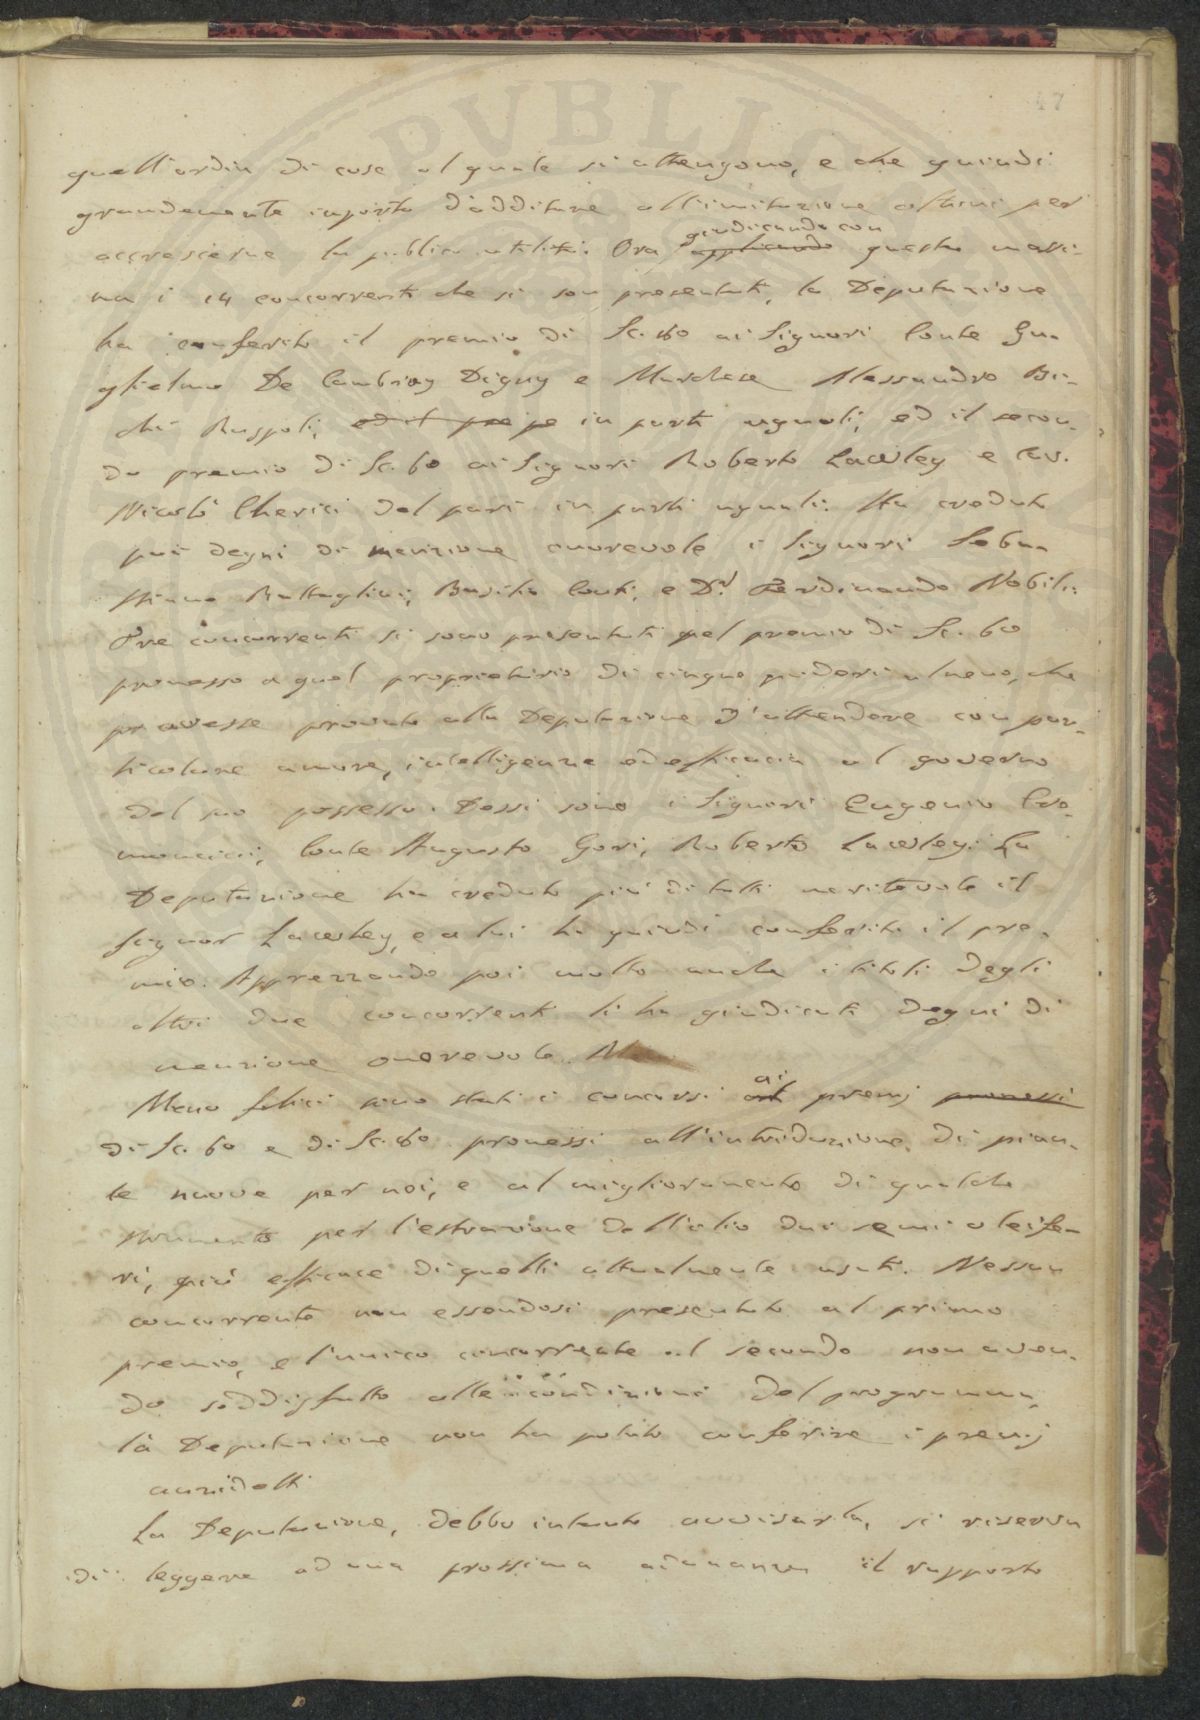 47
quell'ordin di cose al quale si attengono, e che quindi
grandemente importa d'additare all'imitazione altrui per
accrescerne la publica utilità. Ora applicando giudicando con questa massi-
ma i 14 concorrenti che si son presentati, la Deputazione
ha conferito il premio di Sc. 80 ai Signori Conte Gu-
glielmo De Cambray Digny e Marchese Alessandro Bi-
chi Ruspoli, ed il pre pe in parti uguali, ed il secon-
do premio di Sc. 60 ai Signori Roberto Lawley e Cav.
Niccolò Cherici del pari in parti uguali. Ha creduto
poi degni di menzione onorevole i Signori Seba-
stiano Battaglini, Basilio Conti, e D.r Ferdinando Nobili.
Tre concorrenti si sono presentati pel premio di Sc. 60
promesso a quel proprietario di cinque poderi almeno, che
avesse provato alla Deputazione d'attendere con par-
ticolare amore, intelligenza ed efficacia al governo
del suo possesso. Dessi sono i Signori Eugenio
Conte Augusto Gori, Roberto Lawley. La
Deputazione ha creduto più di tutti meritevole il
Signor Lawley, e a lui ha quindi conferito il pre-
mio. Apprezzando poi molto anche i titoli degli
altri due concorrenti li ha giudicati degni di
menzione onorevole.
Meno felici sono stati i concorsi ai premj promessi
di Sc. 60 e di Sc. 80 promessi all'introduzione di pian-
te nuove per noi, e al miglioramento di qualche
strumento per l'estrazione dell'olio dai semi oleife-
ri, più efficace di quelli attualmente usati. Nessun
concorrente non essendosi presentato al primo
premio, e l'unico concorrente al secondo non aven-
do soddisfatto alle condizioni del programma,
la Deputazione non ha potuto conferire i premj
anzidetti
La Deputazione, debbo intanto avvisarla, si riserva
di leggere ad una prossima adunanza il rapporto
PVBLIC